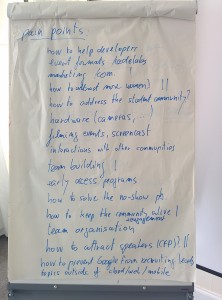 pain points:
how to help developers
event formats hackdays
marketing / com
how to attract more women? ||
how to address the student community?
hardware (cameras,
filming events, screencast
interactions with other communities
team building |
early access programs
how to solve the no-show pb.
how to keep the community alive |
engagement
team organisation
how to attract speakers (CFP)? ||
how to prevent Google from recruiting leads
topics outside of cloud/web/mobile